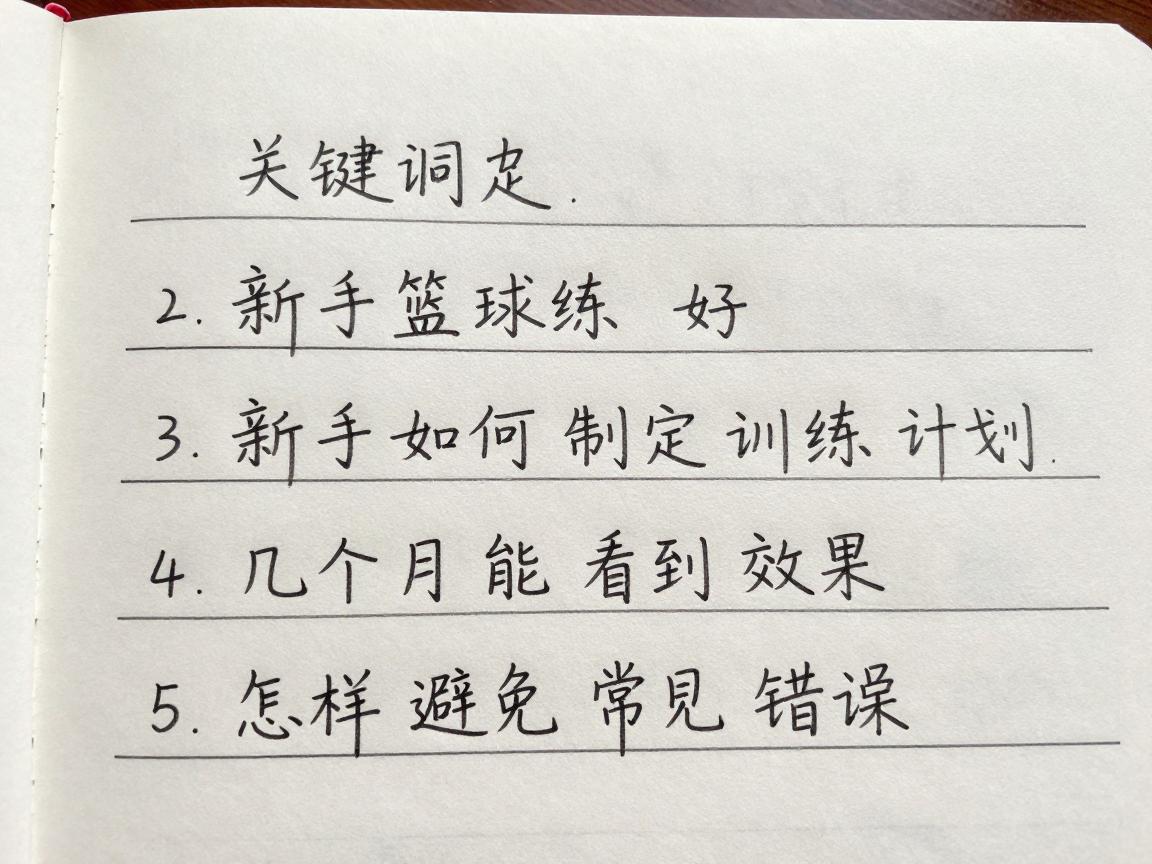 关键词
2. 新手篮球练 好
3. 新手如何制定训练计划.
4. 几个月能看到效果
5. 怎样避免常见错误